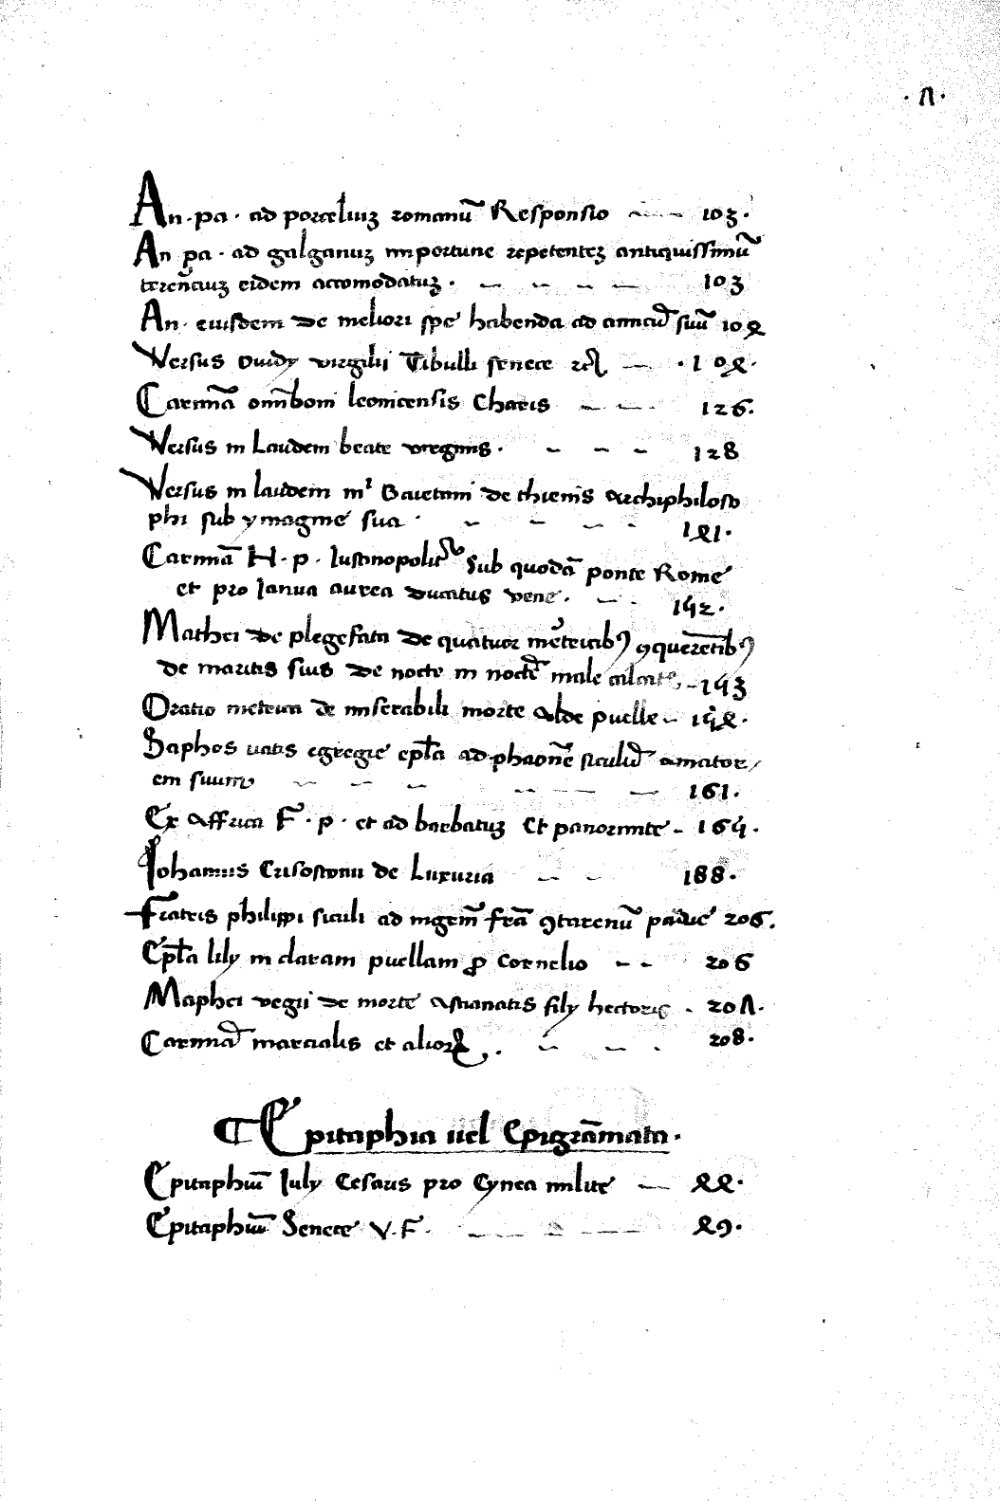 .7.
An. pa. ad porceliuz romanū Responsio 103.
An pa. ad galganuz importune repetentez antiquissimū
terēciuz eidem accomodatuz. 103
An. eiusdem de meliori spe habenda ad amicū suū 104
Versus ouidy virgilii Tibulli senece rc 104.
Carmīa omīboni leonicensis Charis 126.
Versus in Laudem beate virginis. 128
Versus in laudem mri Gaietani de thienis archiphiloso
phi sub ymagine sua. 141.
Carmīa H. p. Iustinopolit sub quodā ponte Rome
et pro Ianua aurea ducatus vene. 142.
Mathei de plegefata de quatuor metricib9 9querētib9
de maritis suis de nocte in noctē male 143
Oratio metrica de miserabili morte alde puelle 144.
Saphos uatis egregie epl̄a ad phaonē siculū amator
em suum 161.
Ex affrica F. p. et ad barbatuz et panormite 164.
Iohannis Crisostomi de Luxuria 188.
Fratris philippi siculi ad mgrm̄ frā 9tarenū padue 206.
Epl̄a lily in claram puellam p Cornelio 206
Maphei vegii de morte astianatis fily hectoris 207.
Carmīa marcialis et alior 208.
Epitaphia uel Epigrāmata.
Epitaphiū Iuly Cesaris pro Cynea milite 44.
Epitaphiū Senece V. F. 49.